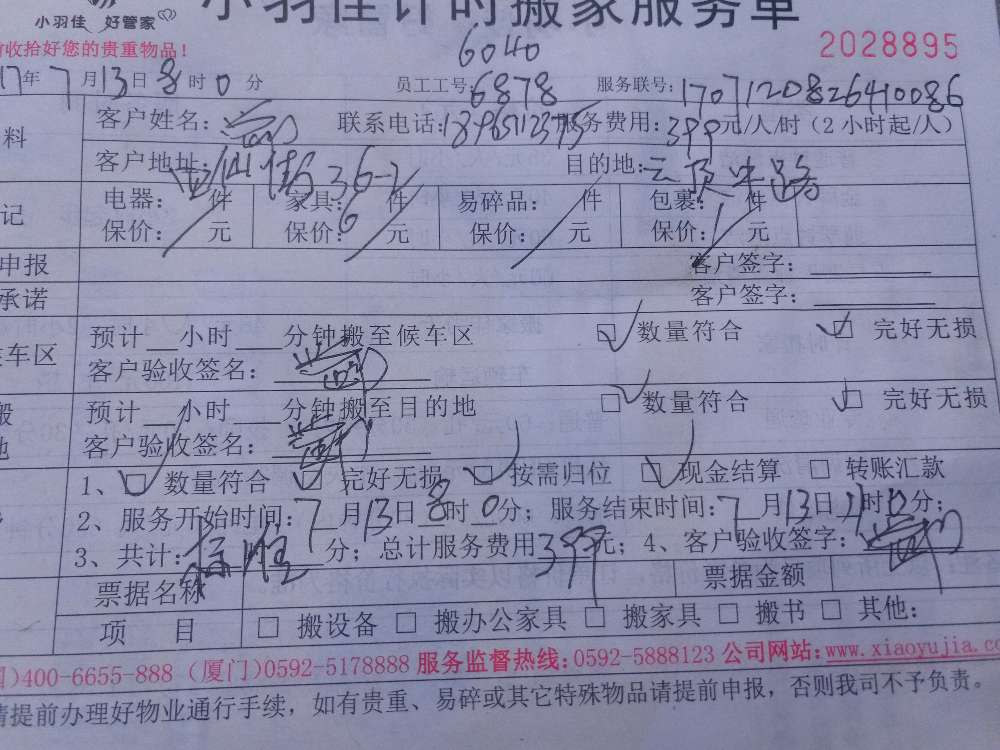 小羽佳计时搬家服务单
小羽佳 好管家
收拾好您的贵重物品！
2028895
6040
17年7月13日8时0分 员工工号：6878 服务联号：1707120826410086
料 客户姓名： 联系电话： 服务费用：399元/人/时（2小时起/人）
客户地址： 36-2 目的地：云顶中路
记 电器： 件 家具：6 件 易碎品： 件 包裹： 件
保价： 元 保价： 元 保价： 元 保价： 元
申报 客户签字：
承诺 客户签字：
车区 预计 小时 分钟搬至候车区 数量符合 完好无损
客户验收签名：
搬 预计 小时 分钟搬至目的地 数量符合 完好无损
地 客户验收签名：
1、 数量符合 完好无损 按需归位 现金结算 转账汇款
2、服务开始时间：7月13日8时0分；服务结束时间：7月13日11时0分；
3、共计： 分；总计服务费用399元；4、客户验收签字：
票据名称 票据金额
项 目 搬设备 搬办公家具 搬家具 搬书 其他：
)400-6655-888 (厦门)0592-5178888 服务监督热线：0592-5888123 公司网站：www.xiaoyujia.co
请提前办理好物业通行手续，如有贵重、易碎或其它特殊物品请提前申报，否则我司不予负责。